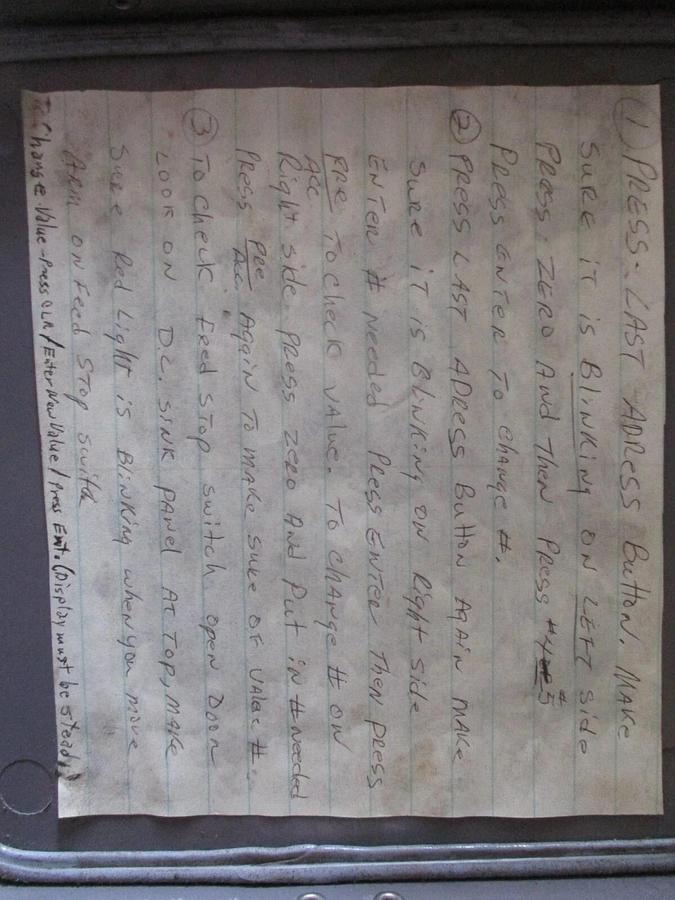 ① PRESS-LAST ADRESS BUTTON. MAKE
SURE IT IS BLINKING ON LEFT SIDE
PRESS ZERO AND THEN PRESS #5
PRESS ENTER TO CHANGE #.
② PRESS LAST ADRESS BUTTON AGAIN MAKE
SURE IT IS BLINKING ON RIGHT SIDE
ENTER # NEEDED PRESS ENTER THEN PRESS
PRE TO CHECK VALUE. TO CHANGE # ON
ACC
RIGHT SIDE. PRESS ZERO AND PUT IN # NEEDED
PRESS PRE AGAIN TO MAKE SURE OF VALUE #.
ACC.
③ TO CHECK FEED STOP SWITCH OPEN DOOR
LOOK ON D.C. SINK PANEL AT TOP, MAKE
SURE RED LIGHT IS BLINKING WHEN YOU MOVE
ARM ON FEED STOP SWITH
To Change Value-Press CLR/Enter New Value/Press Ent. (Display must be steady)